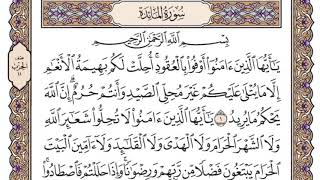 سُورَةُ المَائِدَةِ
بِسْمِ اللَّهِ الرَّحْمَٰنِ الرَّحِيمِ
يَا أَيُّهَا الَّذِينَ ءَامَنُوا أَوْفُوا بِالْعُقُودِ أُحِلَّتْ لَكُم بَهِيمَةُ الْأَنْعَامِ
إِلَّا مَا يُتْلَىٰ عَلَيْكُمْ غَيْرَ مُحِلِّي الصَّيْدِ وَأَنتُمْ حُرُمٌ إِنَّ اللَّهَ
يَحْكُمُ مَا يُرِيدُ ١ يَا أَيُّهَا الَّذِينَ ءَامَنُوا لَا تُحِلُّوا شَعَائِرَ اللَّهِ
وَلَا الشَّهْرَ الْحَرَامَ وَلَا الْهَدْيَ وَلَا الْقَلَائِدَ وَلَا ءَامِّينَ الْبَيْتَ
الْحَرَامَ يَبْتَغُونَ فَضْلًا مِّن رَّبِّهِمْ وَرِضْوَانًا وَإِذَا حَلَلْتُمْ فَاصْطَادُوا